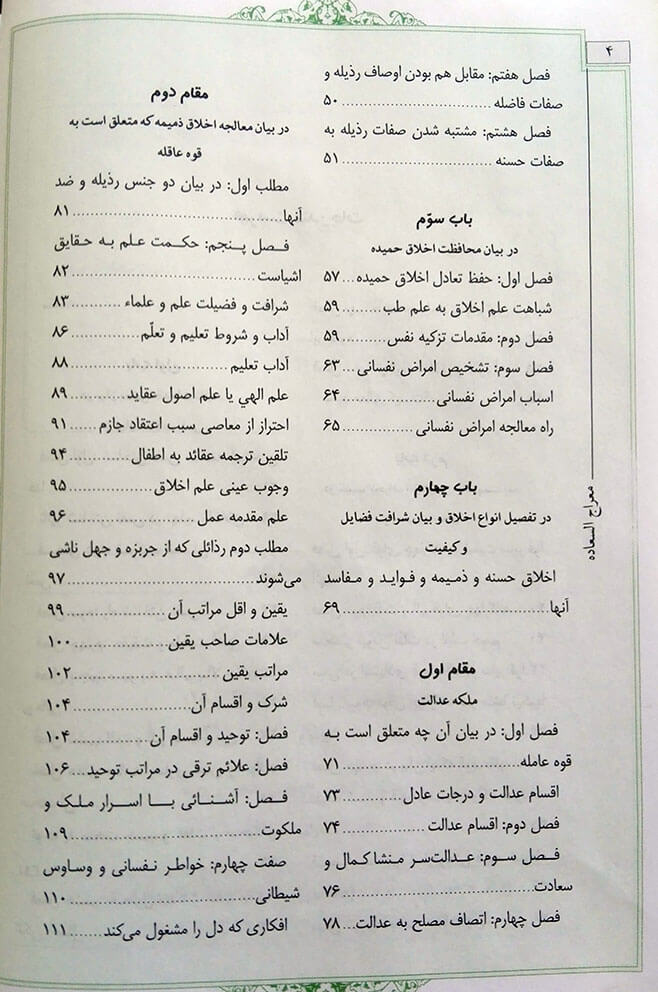 ۴
معراج السعاده
فصل هفتم: مقابل هم بودن اوصاف رذیله و
صفات فاضله ........................ ۵۰
فصل هشتم: مشتبه شدن صفات رذیله به
صفات حسنه ........................ ۵۱
باب سوّم
در بیان محافظت اخلاق حمیده
فصل اول: حفظ تعادل اخلاق حمیده ... ۵۷
شباهت علم اخلاق به علم طب ......... ۵۹
فصل دوم: مقدمات تزکیه نفس ......... ۵۹
فصل سوم: تشخیص امراض نفسانی ... ۶۳
اسباب امراض نفسانی ................. ۶۴
راه معالجه امراض نفسانی ............. ۶۵
باب چهارم
در تفصیل انواع اخلاق و بیان شرافت فضایل
و کیفیت
اخلاق حسنه و ذمیمه و فواید و مفاسد
آنها .................................. ۶۹
مقام اول
ملکه عدالت
فصل اول: در بیان آن چه متعلق است به
قوه عامله ............................ ۷۱
اقسام عدالت و درجات عادل .......... ۷۳
فصل دوم: اقسام عدالت .............. ۷۴
فصل سوم: عدالت‌سر منشا کمال و
سعادت .............................. ۷۶
فصل چهارم: اتصاف مصلح به عدالت ... ۷۸
مقام دوم
در بیان معالجه اخلاق ذمیمه که متعلق است به
قوه عاقله
مطلب اول: در بیان دو جنس رذیله و ضد
آنها .................................. ۸۱
فصل پنجم: حکمت علم به حقایق
اشیاست ............................. ۸۲
شرافت و فضیلت علم و علماء ......... ۸۳
آداب و شروط تعلیم و تعلّم ............ ۸۶
آداب تعلیم ........................... ۸۸
علم الهي یا علم اصول عقاید .......... ۸۹
احتراز از معاصی سبب اعتقاد جازم ..... ۹۱
تلقین ترجمه عقائد به اطفال ........... ۹۴
وجوب عینی علم اخلاق ............... ۹۵
علم مقدمه عمل ...................... ۹۶
مطلب دوم رذائلی که از جربزه و جهل ناشی
می‌شوند ............................. ۹۷
یقین و اقل مراتب آن ................. ۹۹
علامات صاحب یقین ................ ۱۰۰
مراتب یقین ......................... ۱۰۲
شرک و اقسام آن .................... ۱۰۴
فصل: توحید و اقسام آن ............. ۱۰۴
فصل: علائم ترقی در مراتب توحید ... ۱۰۶
فصل: آشنائی با اسرار ملک و
ملکوت ............................. ۱۰۹
صفت چهارم: خواطر نفسانی و وساوس
شیطانی ............................ ۱۱۰
افکاری که دل را مشغول می‌کند ....... ۱۱۱